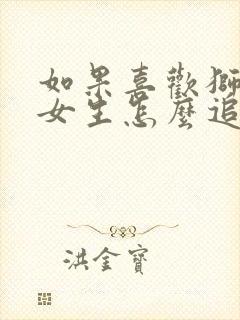 如果喜歡獅
女生怎麼追
洪金寶